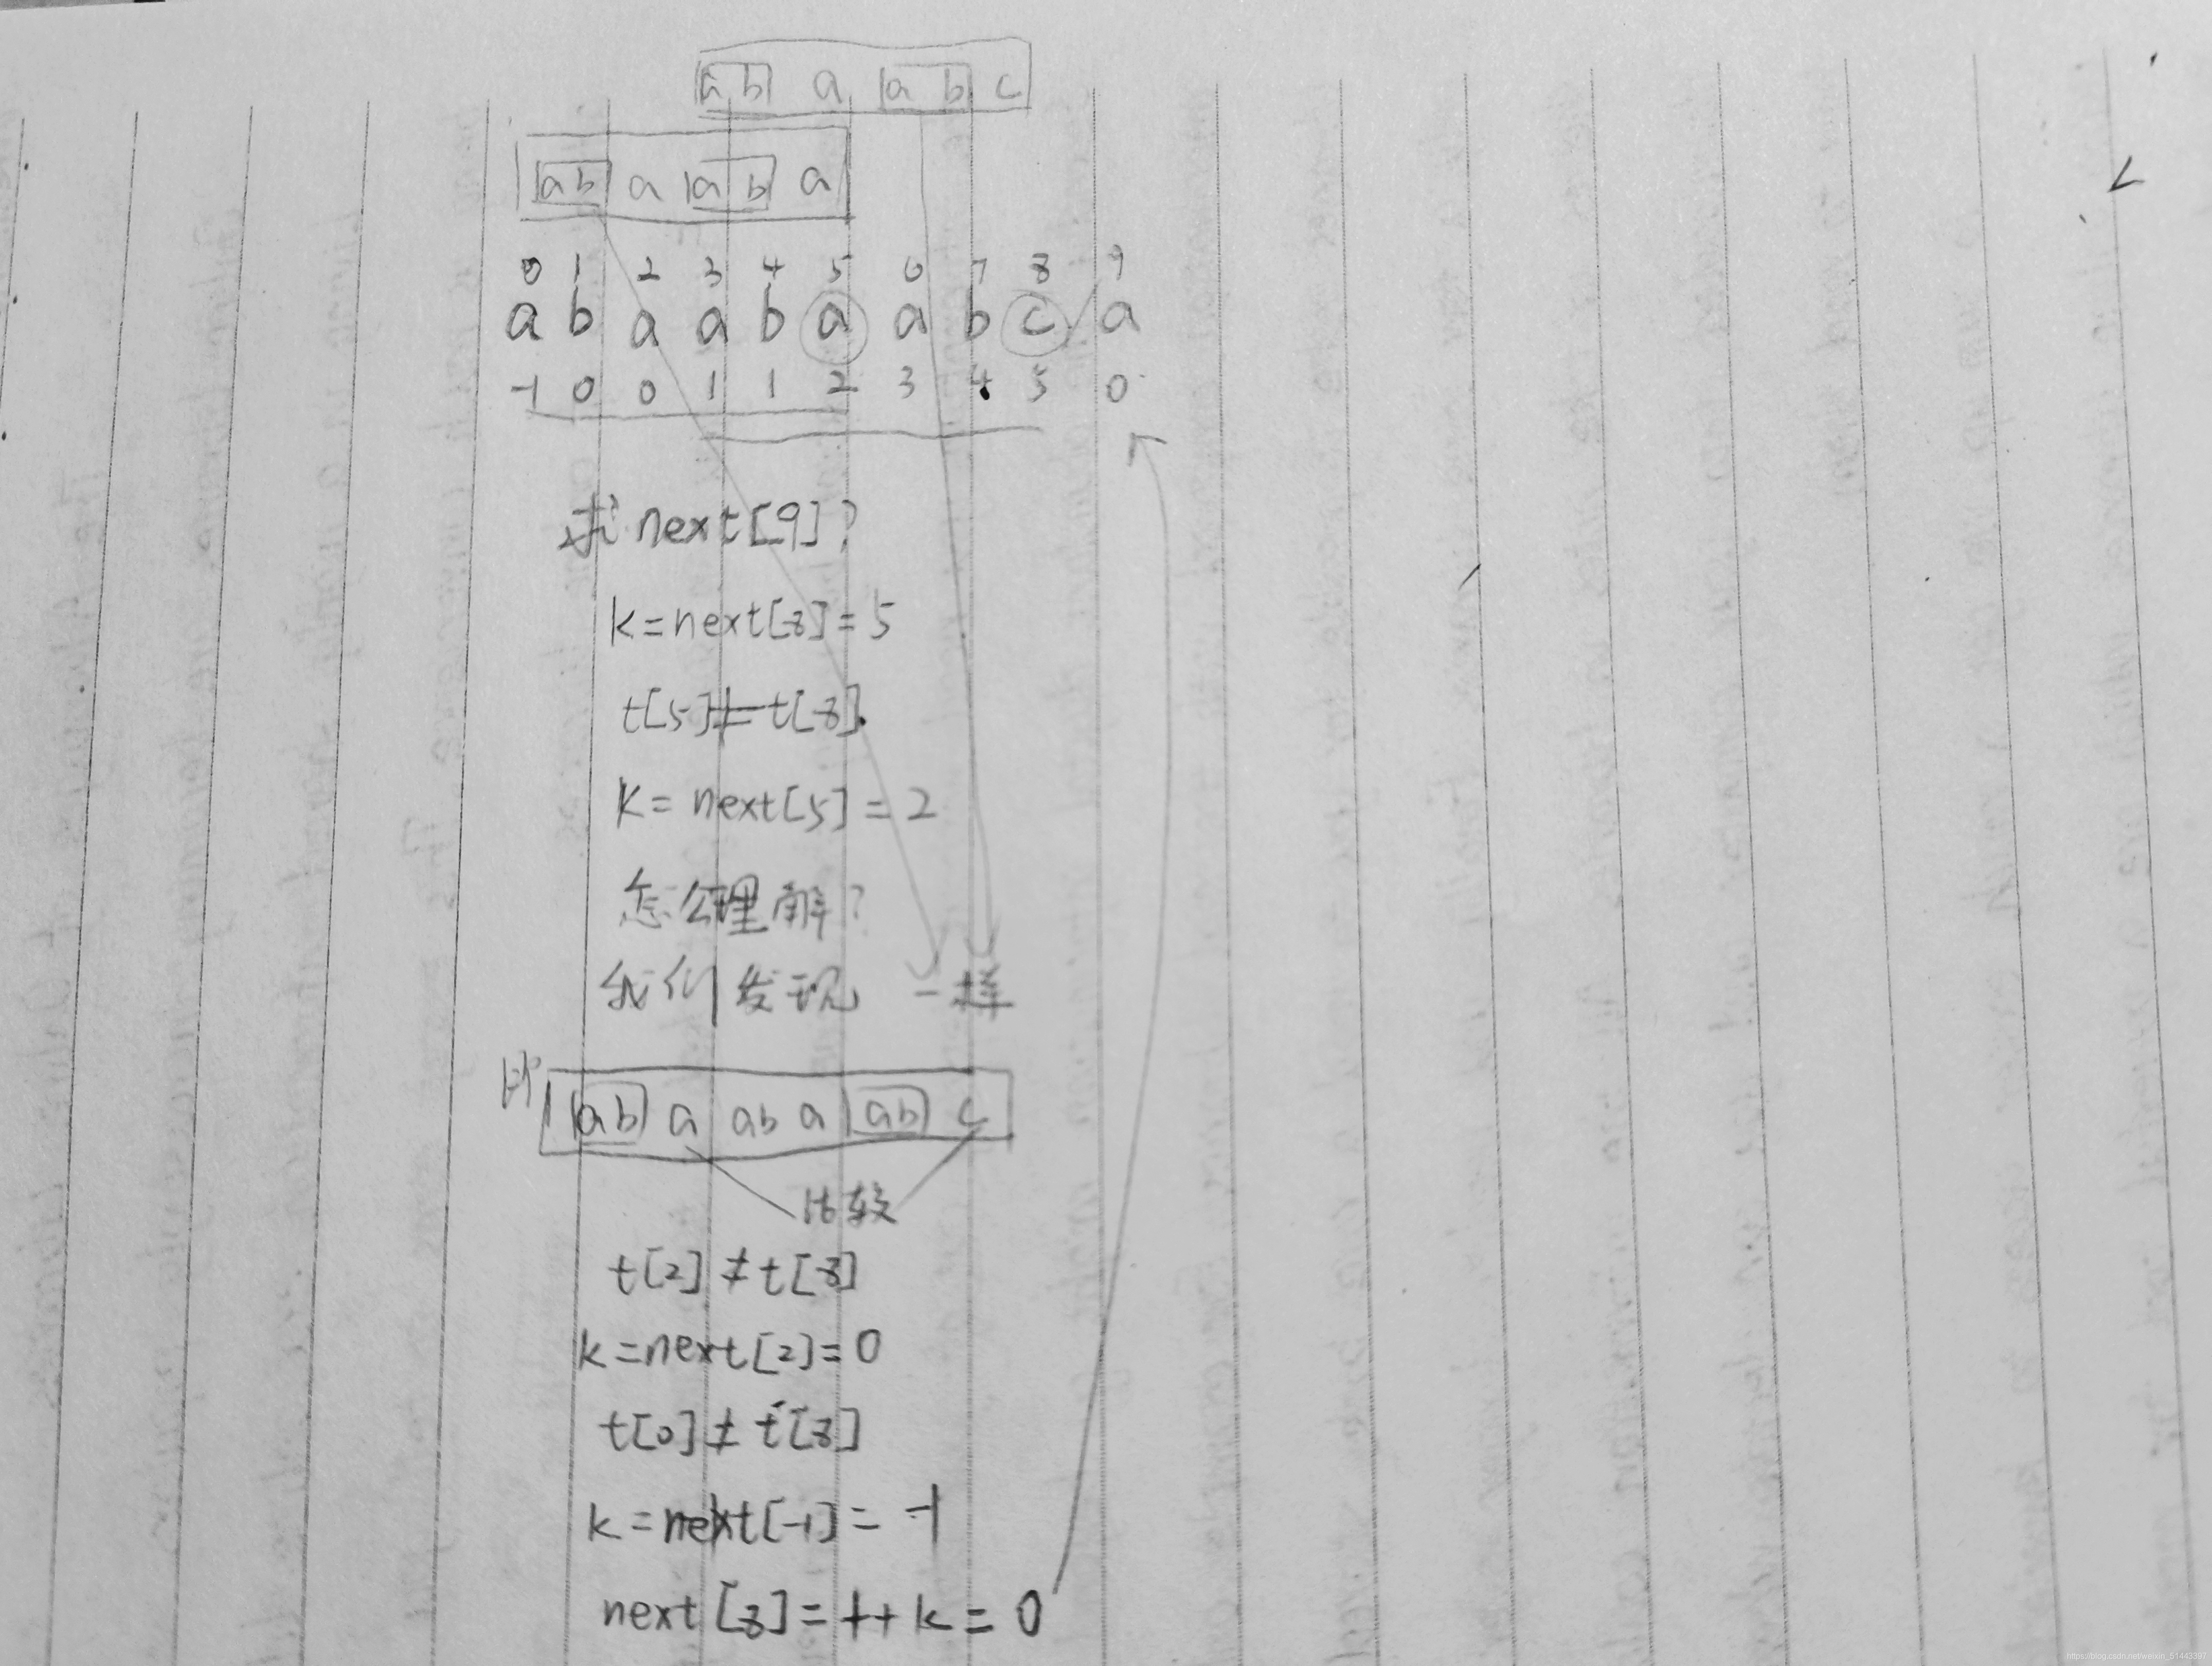 a b a a b c
a b a a b a
0 1 2 3 4 5 6 7 8 9
a b a a b a a b c a
-1 0 0 1 1 2 3 4 5 0
求 next[9]?
k=next[8]=5
t[5]≠t[8].
k=next[5]=2
怎么理解?
我们发现 一样
比 ab a ab a ab c
比较
t[2]≠t[8]
k=next[2]=0
t[0]≠t[8]
k=next[-1]=-1
next[8]=++k=0
https://blog.csdn.net/weixin_51443397